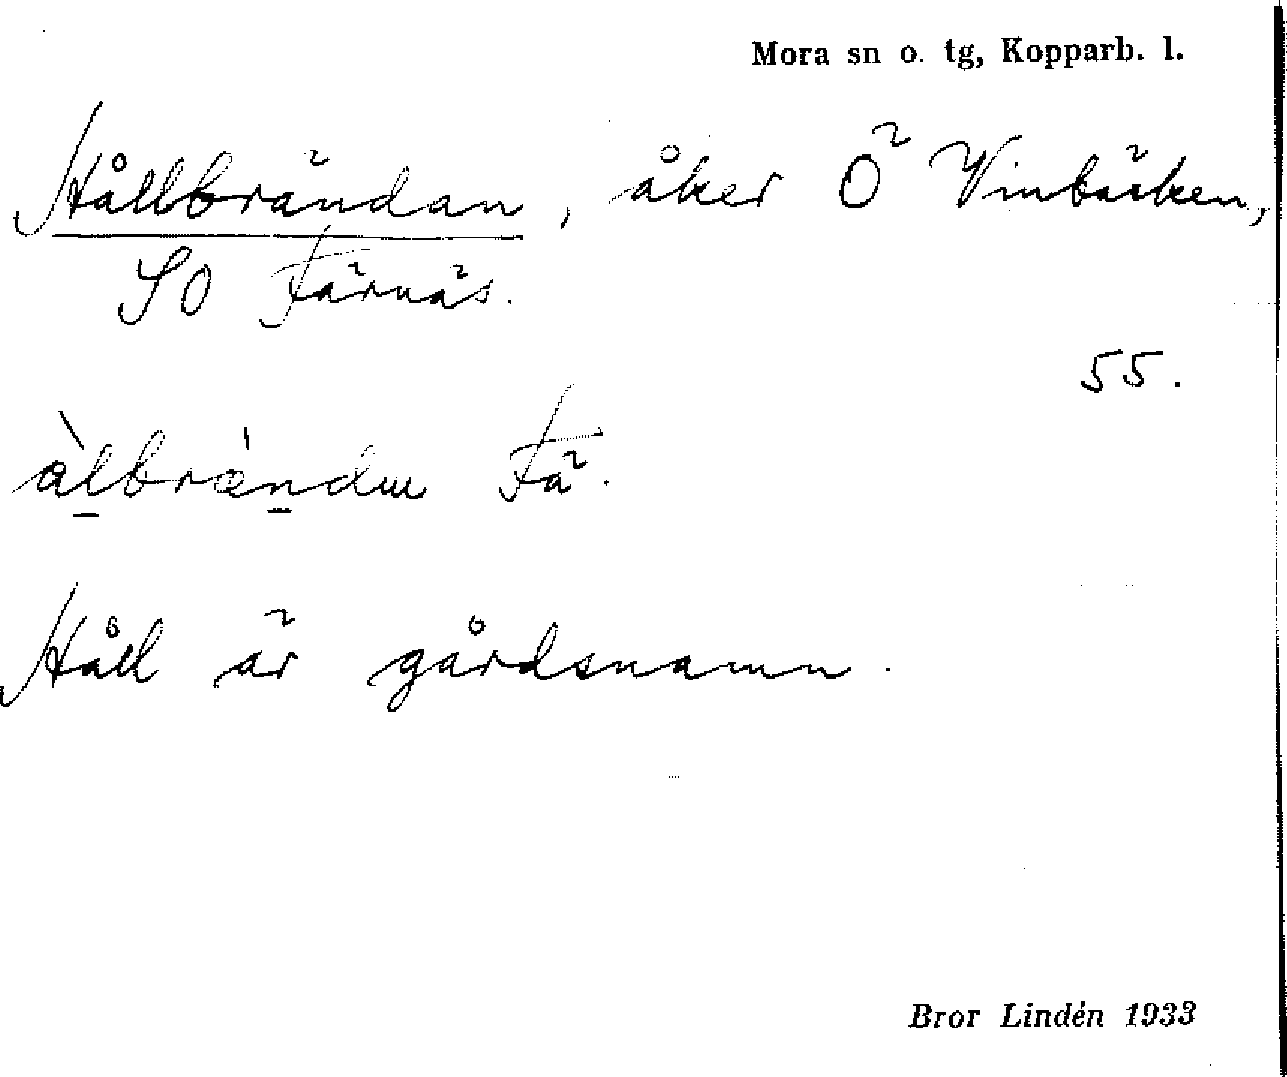 Mora sn o. tg, Kopparb. l.
Hållbrändan, åker Ö Vinbäcken,
SO Färnäs.
55.
àlbrǽndm Fä.
Håll är gårdsnamn.
Bror Lindén 1933